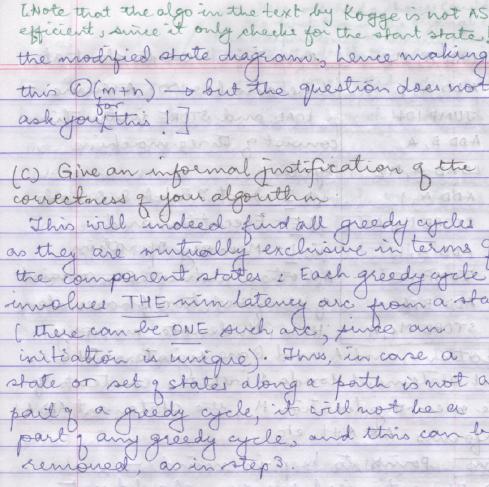 [Note that the algo in the text by Kogge is not AS
efficient, since it only checks for the start state
the modified state diagram, hence making
this O(m+n) → but the question does not
ask you for this!]
(C) Give an informal justification of the
correctness of your algorithm.
This will indeed find all greedy cycles
as they are mutually exclusive in terms of
the component states: Each greedy cycle
involves THE min latency arc from a sta
(there can be ONE such arc, since an
initiation is unique). Thus, in case a
state or set of states along a path is not a
part of a greedy cycle, it will not be a
part of any greedy cycle, and this can b
removed, as in step 3.